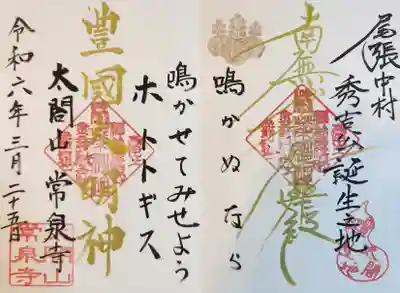 尾張中村
秀吉公誕生之地
南無妙法蓮華経
鳴かぬなら
鳴かせてみせよう
ホトトギス
豊國大明神
太閤山 常泉寺
令和六年三月二十五日
常泉寺